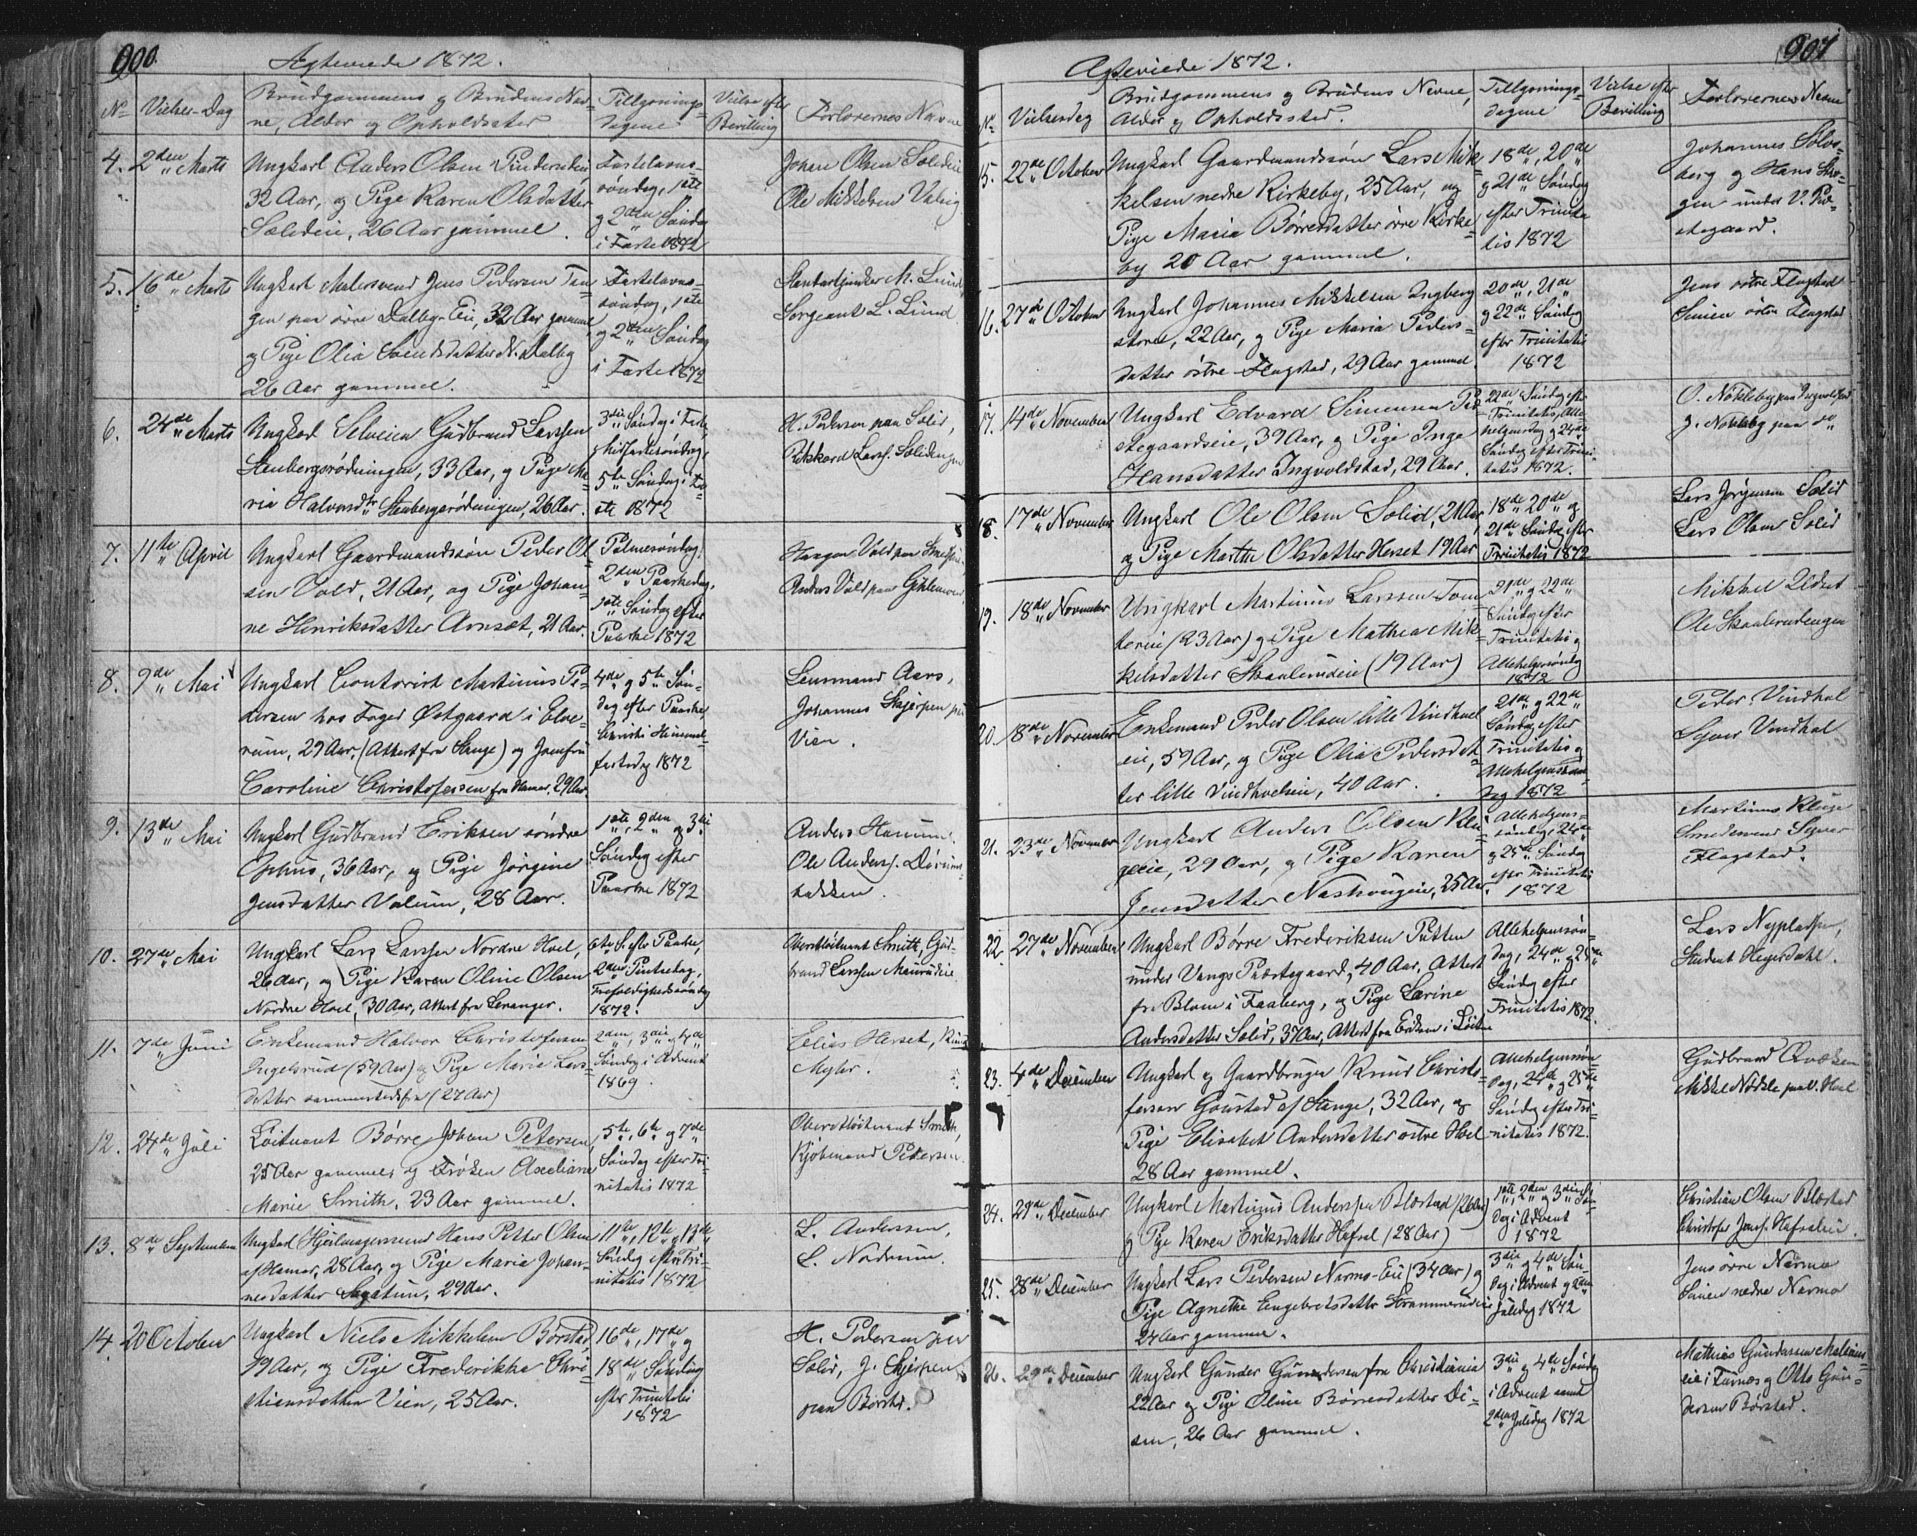 900.
Ægteviede 1872.
No
Vielses-Dag
Brudgommens og Brudens Nav-
ne, Alder og Opholdssted
Tillysnings-
dagene
Vielse efter
Bevilling
Forlovernes Navne
4. 2den Marts
Ungkarl Anders Olsen
32 Aar, og Pige Karen Olsdatter
Solideie, 26 Aar gammel.
Fastelavns-
søndag, 1ste
og 2den Søndag
i Faste 1872
Johan Olsen Solideie
Ole Mikkelsen Valeig
5. 16de Marts
Ungkarl Malersvend Jens Pedersen Tan-
gen paa øvre Dalby-Eie, 32 Aar gammel
og Pige Olia Svendsdatter N. Dalby
26 Aar gammel.
Fastelavns-
søndag, 1ste
og 2den Søndag
i Faste 1872
Standartjunker M. Lund
Sergeant L. Lund
6. 24de Marts
Ungkarl Selveier Gudbrand Larssen
Stenbergsrødningen, 33 Aar, og Pige Ma-
ria Halvorsdtr Stenbergsrødningen, 26 Aar.
3die Søndag i Faste,
Midfastesøndag,
5te Søndag i Fa-
ste 1872
H. Pedersen paa Solid,
Rikkard Larss. Solidengen
7. 11te April
Ungkarl Gaardmandssøn Peder Ol-
sen Vold, 21 Aar, og Pige Johan-
ne Henriksdatter Arnset, 21 Aar.
Palmesøndag,
2den Paaskedag,
1ste Søndag efter
Paaske 1872
Haagen Vold paa
Anders Vold paa
8. 9de Mai
Ungkarl Contorist Martinus Pe-
dersen hos Foged Østgaard i Elve-
rum, 29 Aar, (Attest fra Stange) og Jomfru
Caroline Christofersen fra Hamar, 29 Aar.
4de og 5te Søn-
dag efter Paaske,
Christi Himmel-
fartsdag 1872
Lensmand Aars,
Johannes Skjerpen paa
Vien.
9. 13de Mai
Ungkarl Gudbrand Eriksen søndre
Ophus, 36 Aar, og Pige Jørgine
Jensdatter Valum, 28 Aar.
1ste, 2den og 3die
Søndag efter
Paaske 1872
Anders Hanum
Ole Anderss.
bakken.
10. 27de Mai
Ungkarl Lars Larssen Nordre Hoel,
26 Aar, og Pige Karen Oline Olsen
Nordre Hoel, 30 Aar, Attest fra Levanger.
6te S. efter Paaske,
2den Pintsedag,
Trefoldighedssøndag
1872.
Oberstløitnant Smith, Gud-
brand Larssen Maurudeie
11. 7de Juni
Enkemand Halvor Christofersen
Ingelsrud (59 Aar) og Pige Marie Lars-
datter sammestedsfra (27 Aar)
2den, 3die og 4de
Søndag i Advent
1869.
Elias Herset,
Myhr.
12. 24de Juli
Løitnant Børre Johan Petersen,
25 Aar gammel, og Frøken Axeliane
Marie Smith, 23 Aar gammel.
5te, 6te og 7de
Søndag efter Tri-
nitatis 1872
Oberstløitnant Smith,
Kjøbmand Petersen
13. 8de September
Ungkarl Hjulmagersvend Hans Petter Olsen
af Hamar, 28 Aar, og Pige Maria Johan-
nesdatter Sagatun, 29 Aar.
11te, 12te, 13de
Søndag efter Tri-
nitatis 1872
L. Andersen,
L. Nordrum.
14. 20 October
Ungkarl Niels Mikkelsen Børstad,
29 Aar, og Pige Frederikke Chri-
stiansdatter Vien, 25 Aar.
16de, 17de og
18de Søndag
efter Trinitatis
1872
H. Pedersen paa
Solid, J. Skjerpen
paa Børstad.
907
Ægteviede 1872.
No
Vielsesdag
Brudgommens og Brudens Navne,
Alder og Opholdssted.
Tillysnings-
dagene
Vielse efter
Bevilling
Forlovernes Navne
15. 22de October
Ungkarl Gaardmandssøn Lars Mik-
kelsen nedre Kirkeby, 25 Aar, og
Pige Maria Børresdatter øvre Kirke-
by 20 Aar gammel.
18de, 20de
og 21de Søndag
efter Trinita-
tis 1872
Johannes Solv-
berg og Hans Sko-
gen under V. Præ-
stegaard.
16. 27de October
Ungkarl Johannes Mikkelsen Ingberg
store, 22 Aar, og Pige Maria Peders-
datter østre Flagstad, 29 Aar gammel.
20de, 21de
og 22de Søndag
efter Trinitatis
1872
Jens østre Flagstad
Simen østre Flagstad
17. 14de November
Ungkarl Edvard Simensen Præ-
stegaardseie, 39 Aar, og Pige Inge
Hansdatter Ingvoldstad, 29 Aar.
22de Søndag efter
Trinitatis, Alle-
helgensdag og 24de
Søndag efter Trini-
tatis 1872.
O. Nökleby paa Ingvoldstad
J. Nökleby paa do
18. 17de November
Ungkarl Ole Olsen Solid, 21 Aar,
og Pige Marthe Olsdatter Herset 19 Aar
18de 20de og
21de Søndag efter
Trinitatis 1872
Lars Jørgensen Solid
Lars Olsen Solid
19. 18de November
Ungkarl Martinus Larssen Tom-
tereie (23 Aar) og Pige Mathea Mik-
kelsdatter Skaalerudeie (19 Aar)
21de og 22de
Søndag efter
Trinitatis og
Allehelgensøndag
1872
Mikkel
Ole Skaalerudengen
20. 18de November
Enkemand Peder Olsen lille Vindhoel-
eie, 59 Aar, og Pige Olia Pedersdat-
ter lille Vindhoeleie, 40 Aar.
21de og 22de
Søndag efter
Trinitatis og
Allehelgenssøn-
dag 1872
Peder Vindhol
Syver Vindhol
21. 23de November
Ungkarl Anders Olsen Klu-
geeie, 29 Aar, og Pige Karen
Jensdatter Nashougeie, 25 Aar.
Allehelgens-
søndag, 24de
og 25de Søndag
efter Trinitatis
1872
Martinus Kluge
Smedsvend Syver
Flagstad.
22. 27de November
Ungkarl Børre Frederiksen Putten
under Vangs Præstegaard, 40 Aar, Attest
fr. Blom i Faaberg, og Pige Karine
Andersdatter Solid, 37 Aar, Attest fra Eriksen i Løiten
Allehelgensøn-
dag, 24de og 25de
Søndag efter
Trinitatis 1872.
Lars Nypladsen,
Student Heyerdahl.
23. 4de December
Ungkarl og Gaardbruger Knud Christo-
fersen Gaustad af Stange, 32 Aar, og
Pige Elisabet Andersdatter østre Hoel
28 Aar gammel.
Allehelgensøn-
dag, 24de og 25de
Søndag efter Tri-
nitatis 1872.
Gudbrand Qvæken
Mikkel Nordre paa V. Hoel
24. 29de December
Ungkarl Martinus Anderssen Blæstad (26 Aar)
og Pige Karen Eriksdatter Hafsal (28 Aar)
1ste, 2den og 3die Søn-
dag i Advent
1872
Christian Olsen Blæstad
Christofer Jonss. Hafsaleie.
25. 28de December
Ungkarl Lars Pedersen Narmo-Eie (34 Aar) og
Pige Agnethe Engebretsdatter Strammerudeie
24 Aar gammel.
3die og 4de Søn-
dag i Advent og 2den
Juledag 1872
Jens øvre Narmo
Simen nedre Narmo
26. 29de December
Ungkarl Gunder Gundersen fra Christiania
22 Aar og Pige Oline Børresdatter Di-
sen, 26 Aar gammel.
3die og 4de Søndag
i Advent samt
2den Juledag 1872
Mathias Gundersen
eie i Furnes og Otto Gun-
dersen Børstad.